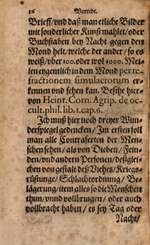 56 Vorrede.
Brieff / und daß man etliche Bilder
mit sonderlicher Kunst mahlet / oder
Buchstaben bey Nacht gegen den
Mond helt / welche der ander / so es
weiß / über 100. oder wol 1000. Mei-
len eygentlich in dem Mond per re-
fractionem simulacrorum er-
kennen und sehen kan. Besihe hier-
von Heinr. Corn. Agrip. de oc-
cult. phil. lib. 1. cap. 6.
Ich muß hier noch dreyer Wun-
derspiegel gedencken / Im ersten soll
man alle Conterafeten der Men-
schen sehen / als von Dieben / Fein-
den / und andern Personen / desglei-
chen von gestalt des Diebes / Kriegs-
rüstung / Schlachtordnung / Be-
lägerung / item alles so die Menschen
thun / und vollbringen / oder auch
vollbracht haben / es sey Tag oder
Nacht /